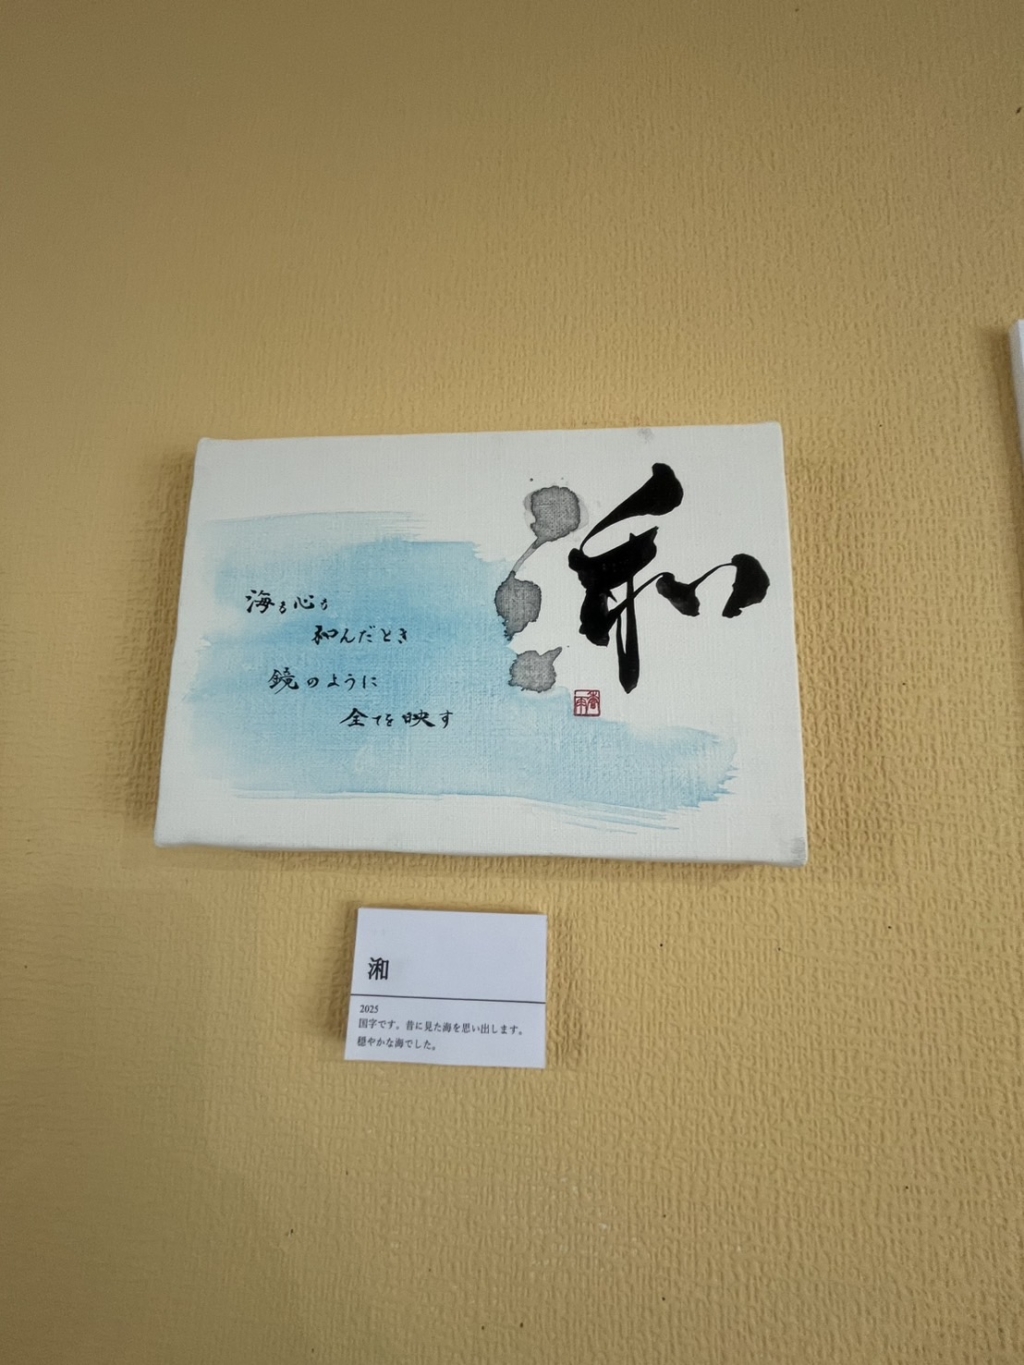 海も心も
和んだとき
鏡のように
全てを映す
㴒
2025
国字です。昔に見た海を思い出します。
穏やかな海でした。